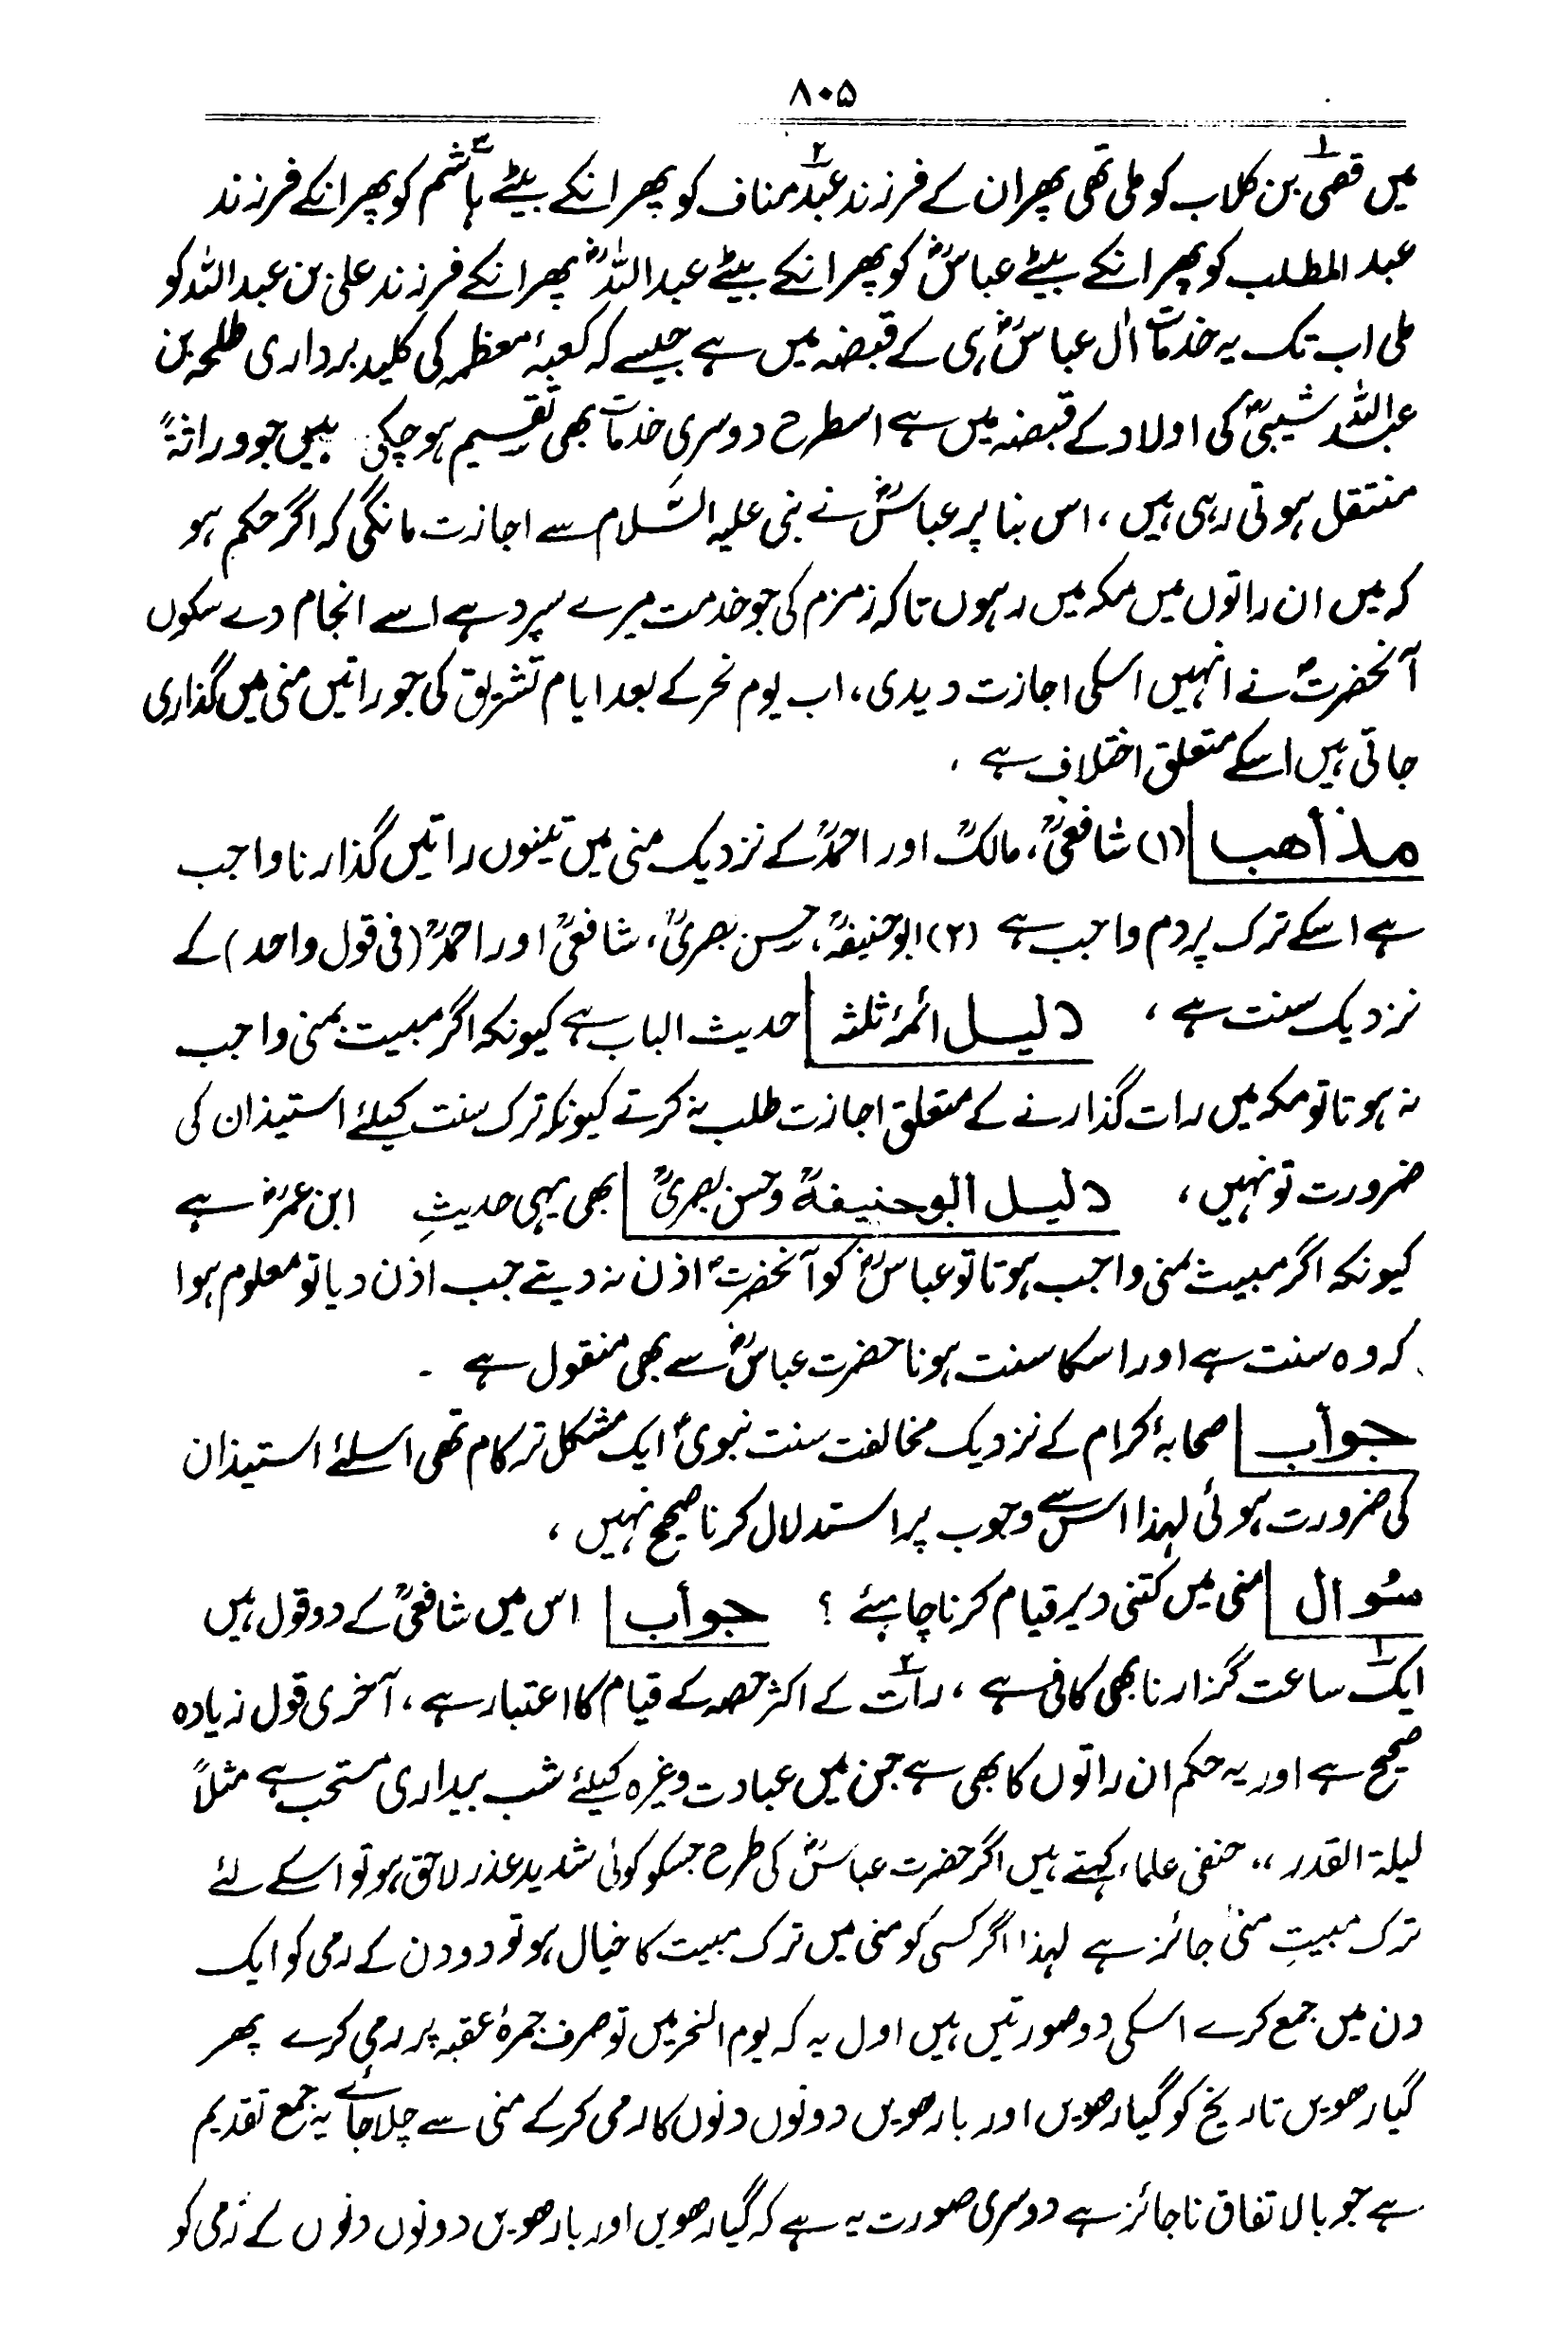 ۸۰۵
میں قصی بن کلاب کو ملی تھی پھر ان کے فرزند عبد مناف کو پھر انکے بیٹے ہاشم کو پھر انکے فرزند
عبد المطلب کو پھر انکے بیٹے عباسؓ کو پھر انکے بیٹے عبداللہؓ پھر انکے فرزند علی بن عبداللہ کو
ملی اب تک یہ خدمات اٰل عباسؓ ہی کے قبضہ میں ہے جیسے کہ کعبۂ معظمہ کی کلید برداری طلحہ بن
عبداللہ شیبیؓ کی اولاد کے قبضہ میں ہے اسطرح دوسری خدمات بھی تقسیم ہوچکی ہیں جو وراثۃً
منتقل ہوتی رہی ہیں، اس بنا پر عباسؓ نے نبی علیہ السّلام سے اجازت مانگی کہ اگر حکم ہو
کہ میں ان راتوں میں مکہ میں رہوں تاکہ زمزم کی جو خدمت میرے سپرد ہے اسے انجام دے سکوں
آنحضرتؐ نے انہیں اسکی اجازت دیدی، اب یوم نحر کے بعد ایام تشریق کی جو راتیں منی میں گذاری
جاتی ہیں اسکے متعلق اختلاف ہے ،
مذاھب (۱) شافعیؒ، مالکؒ اور احمدؒ کے نزدیک منی میں تینوں راتیں گذارنا واجب
ہے اسکے ترک پر دم واجب ہے (۲) ابوحنیفہؒ، حسن بصریؒ، شافعیؒ اور احمدؒ (فی قول واحد) کے
نزدیک سنت ہے ، دلیل ائمۂ ثلثہ حدیث الباب ہے کیونکہ اگر مبیت بمنی واجب
نہ ہوتا تو مکہ میں رات گذارنے کے متعلق اجازت طلب نہ کرتے کیونکہ ترک سنت کیلئے استیذان کی
ضرورت تو نہیں ، دلیل ابوحنیفۃؒ وحسن بصریؒ بھی یہی حدیثِ ابن عمرؓ ہے
کیونکہ اگر مبیت بمنی واجب ہوتا تو عباسؓ کو آنحضرتؐ اذن نہ دیتے جب اذن دیا تو معلوم ہوا
کہ وہ سنت ہے اور اسکا سنت ہونا حضرت عباسؓ سے بھی منقول ہے ۔
جواب صحابۂ کرام کے نزدیک مخالفت سنت نبویؐ ایک مشکل تر کام تھی اسلئے استیذان
کی ضرورت ہوئی لہذا اس سے وجوب پر استدلال کرنا صحیح نہیں ،
سُوال منی میں کتنی دیر قیام کرنا چاہئے ؟ جواب اس میں شافعیؒ کے دو قول ہیں
۱ ایک ساعت گزارنا بھی کافی ہے ، ۲ رات کے اکثر حصہ کے قیام کا اعتبار ہے ، آخری قول زیادہ
صحیح ہے اور یہ حکم ان راتوں کا بھی ہے جن میں عبادت وغیرہ کیلئے شب بیداری مستحب ہے مثلاً
لیلۃ القدر ،، حنفی علماء کہتے ہیں اگر حضرت عباسؓ کی طرح جسکو کوئی شدید عذر لاحق ہو تو اسکے لئے
ترک مبیتِ منیٰ جائز ہے لہذا اگر کسی کو منی میں ترک مبیت کا خیال ہو تو دو دن کے رمی کو ایک
دن میں جمع کرے اسکی دو صورتیں ہیں اول یہ کہ یوم النحر میں تو صرف جمرۂ عقبہ پر رمی کرے پھر
گیارھویں تاریخ کو گیارھویں اور بارھویں دونوں دنوں کا رمی کرکے منی سے چلا جائے یہ جمع تقدیم
ہے جو بالاتفاق ناجائز ہے دوسری صورت یہ ہے کہ گیارھویں اور بارھویں دونوں دنوں کے رمی کو